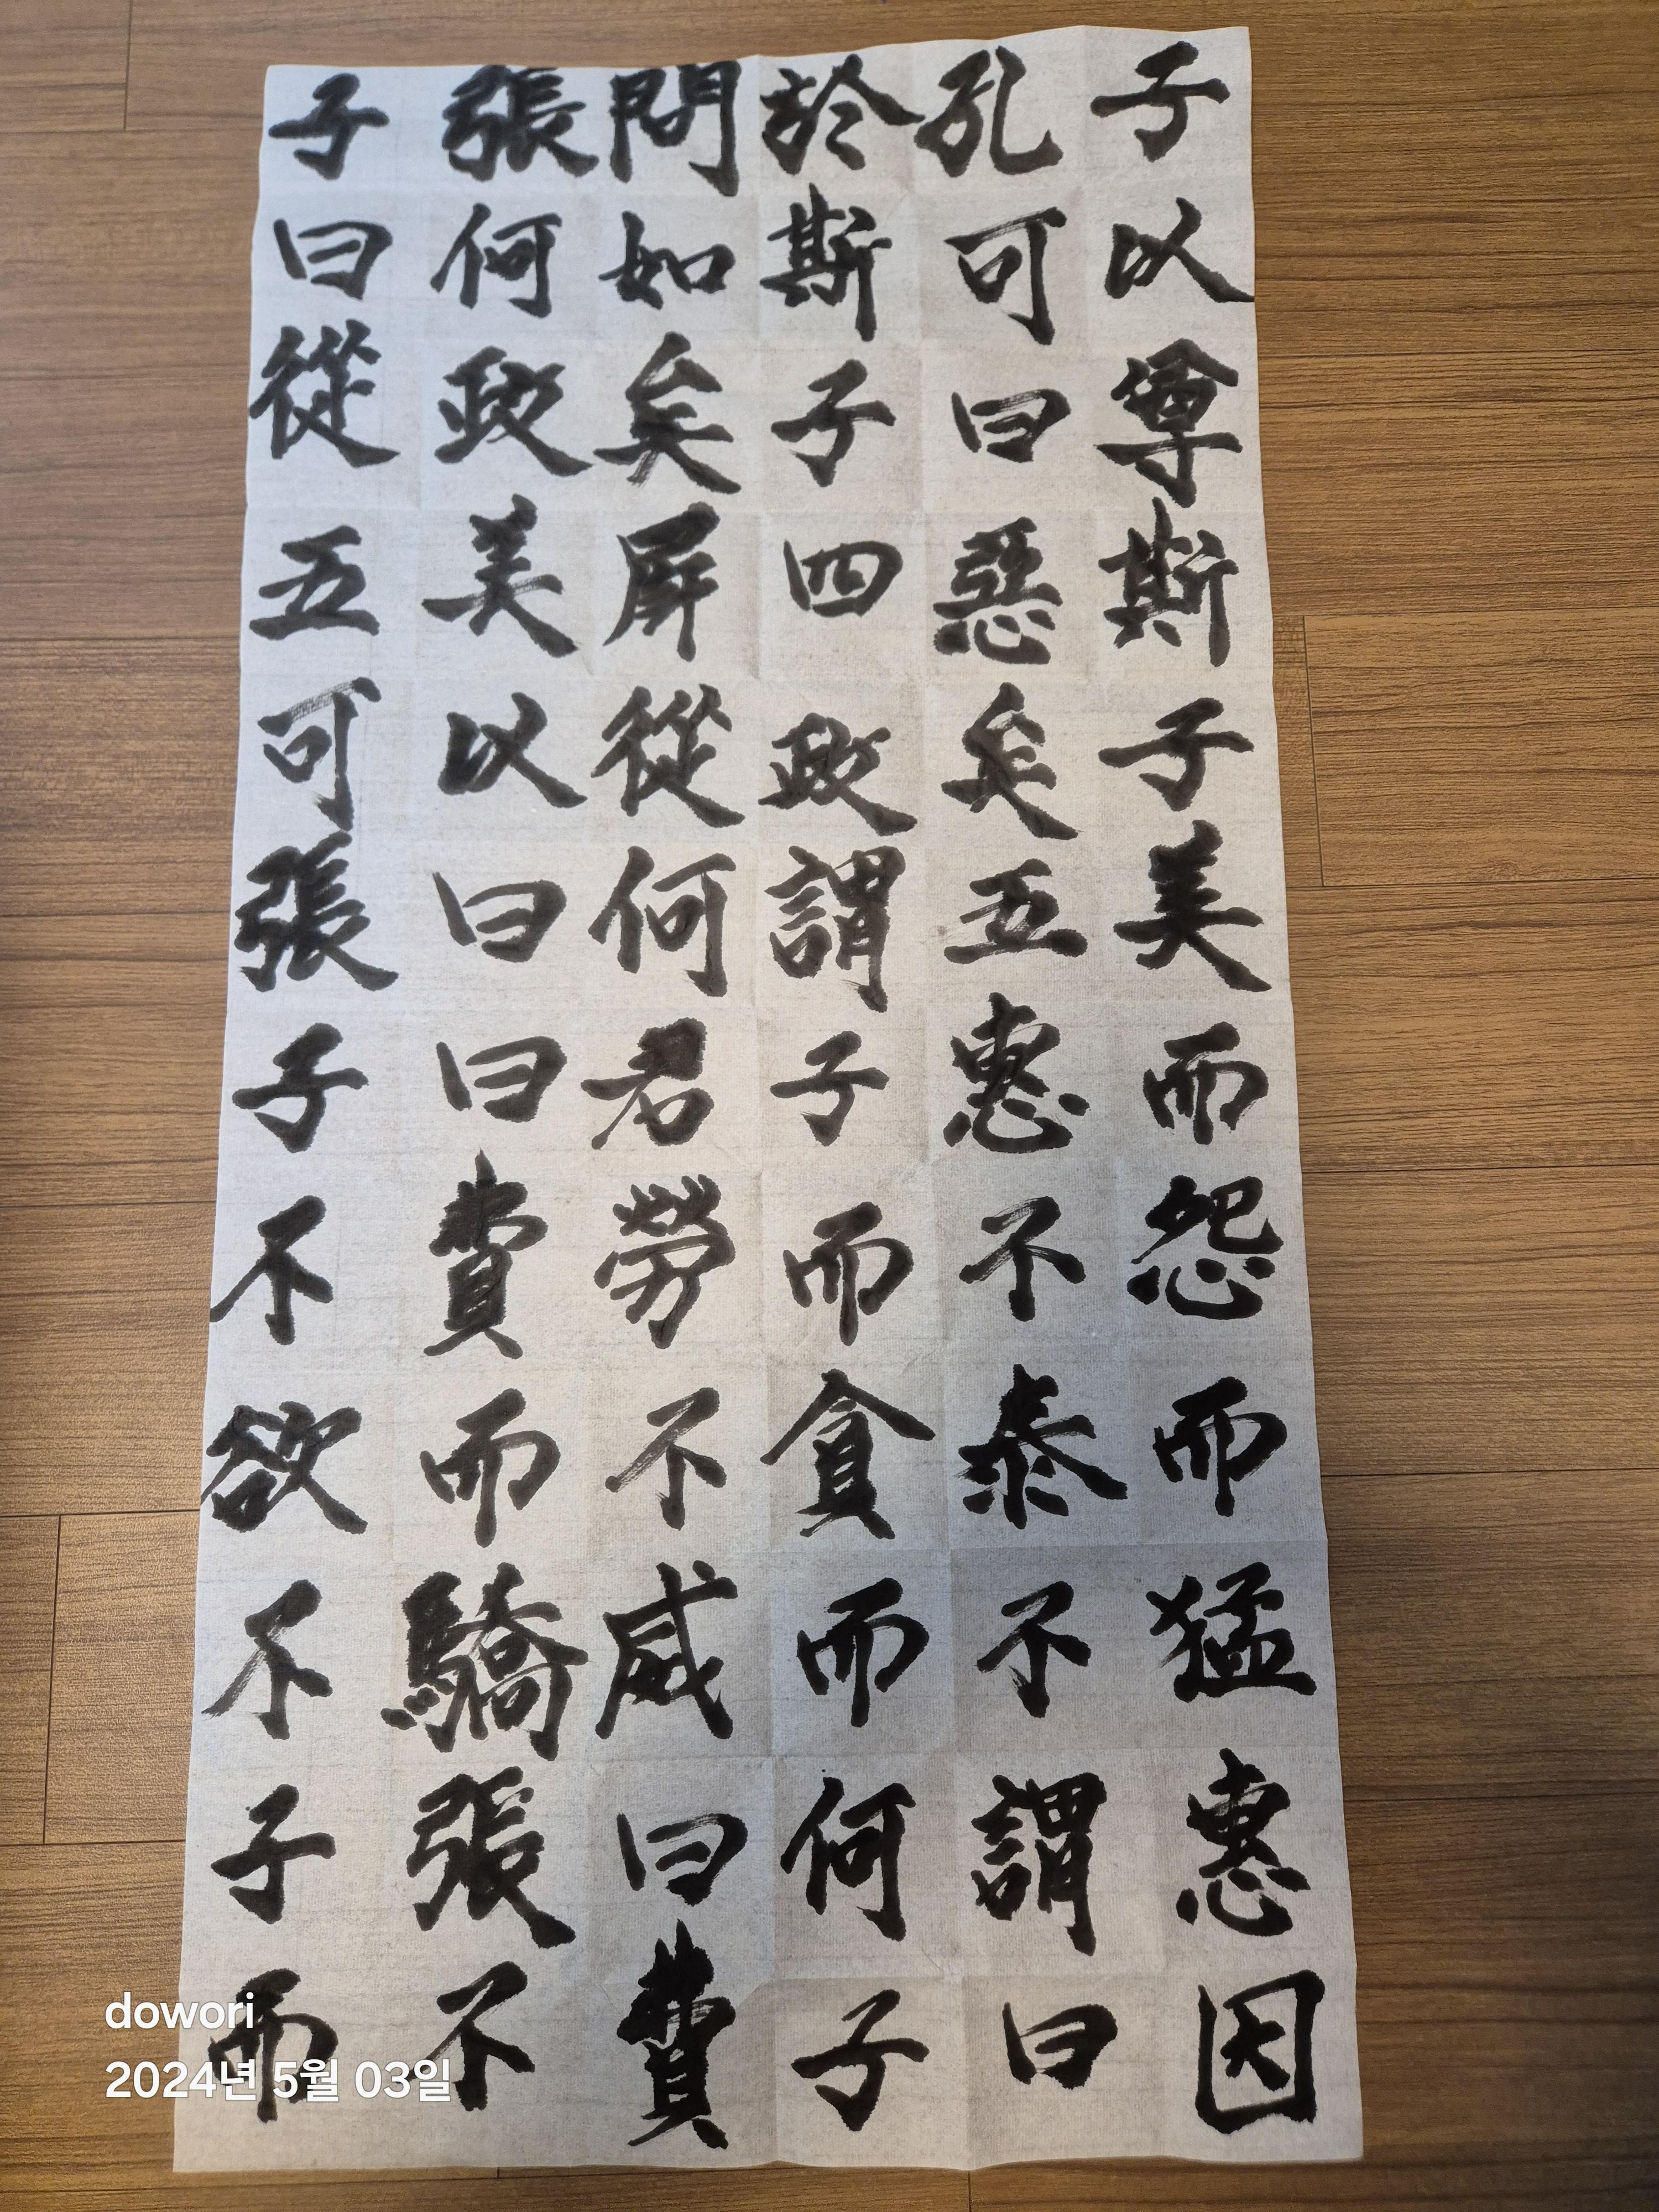 子以尊斯子美而怨而猛惠因
孔可曰惡矣五惠不泰不謂曰
於斯子四政謂子而貪而何子
問如矣屏從何君勞不威曰費
張何政美以曰曰費而驕張不
子曰從五可張子不欲不子而
dowori
2024년 5월 03일